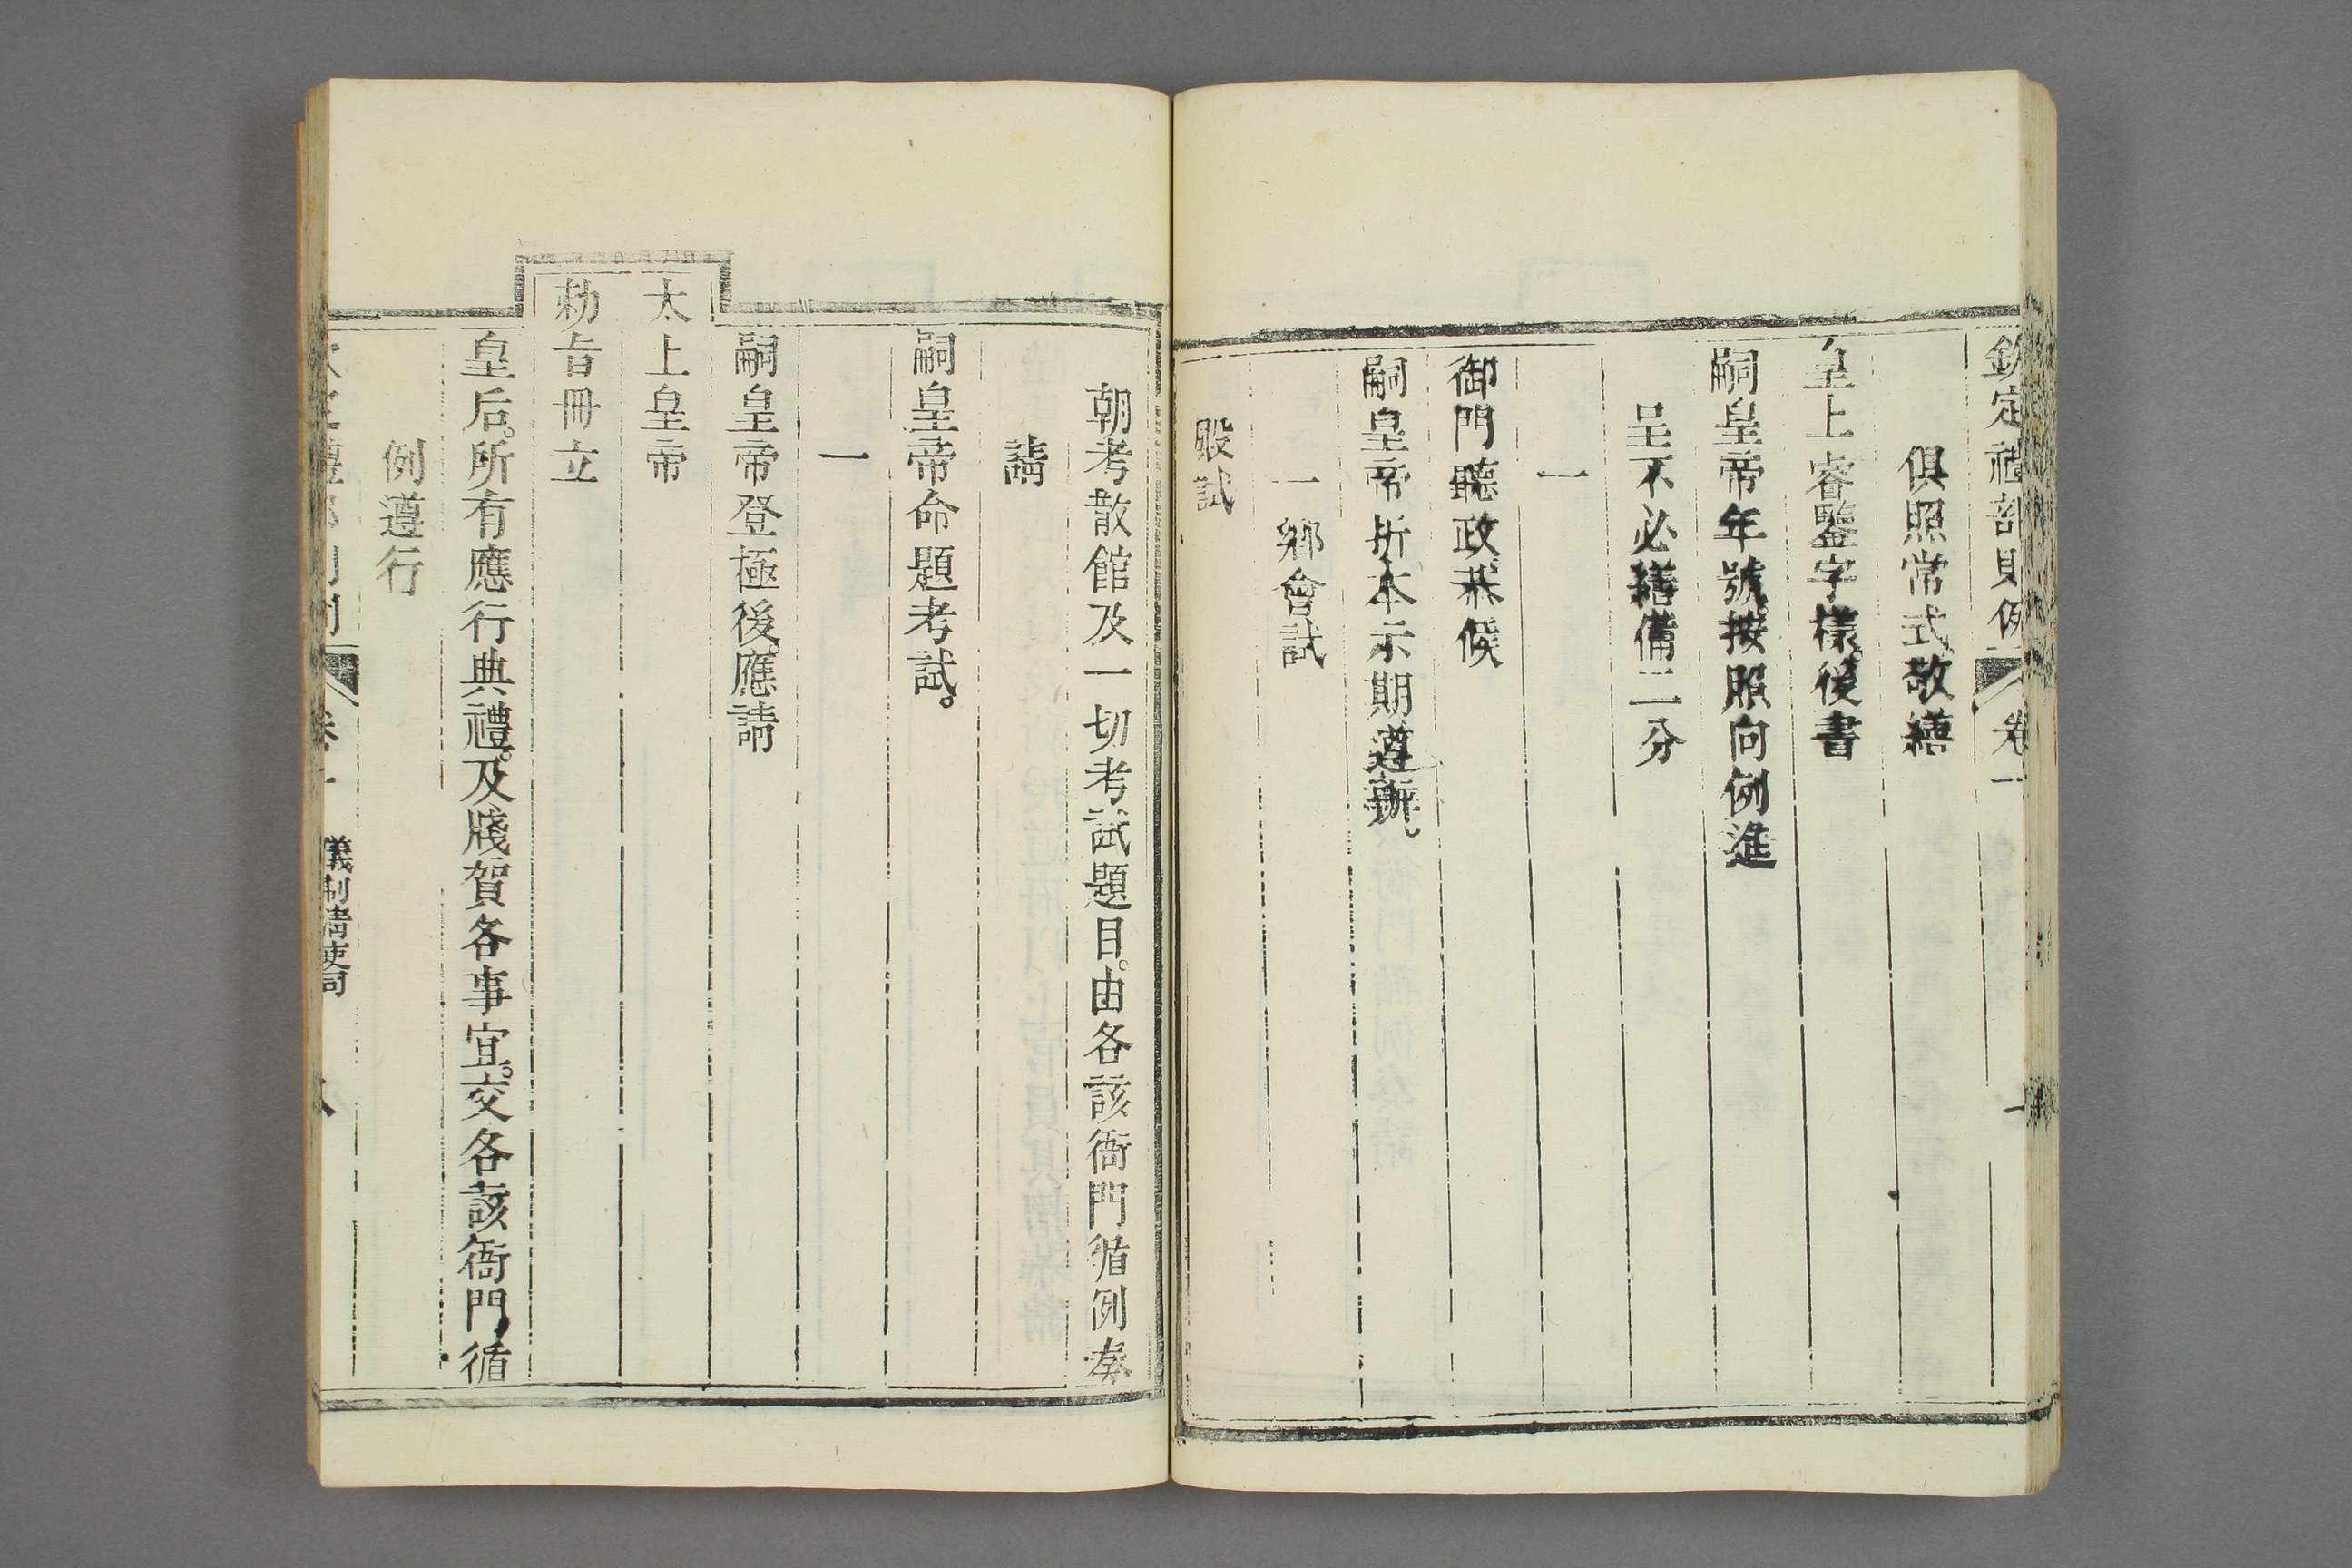 欽定禮部則例 卷一
俱照常式敬繕
皇上睿鑒字樣。後書
嗣皇帝年號。按照向例進
呈不必繕備二分
一
御門聽政恭候
嗣皇帝折本示期遵辦。
一鄉會試
殿試
朝考散館及一切考試題目。由各該衙門循例奏
請
嗣皇帝命題考試。
一
嗣皇帝登極後。應請
太上皇帝
勅旨冊立
皇后。所有應行典禮。及牋賀各事宜。交各該衙門循
例遵行
卷一 儀制清吏司 八